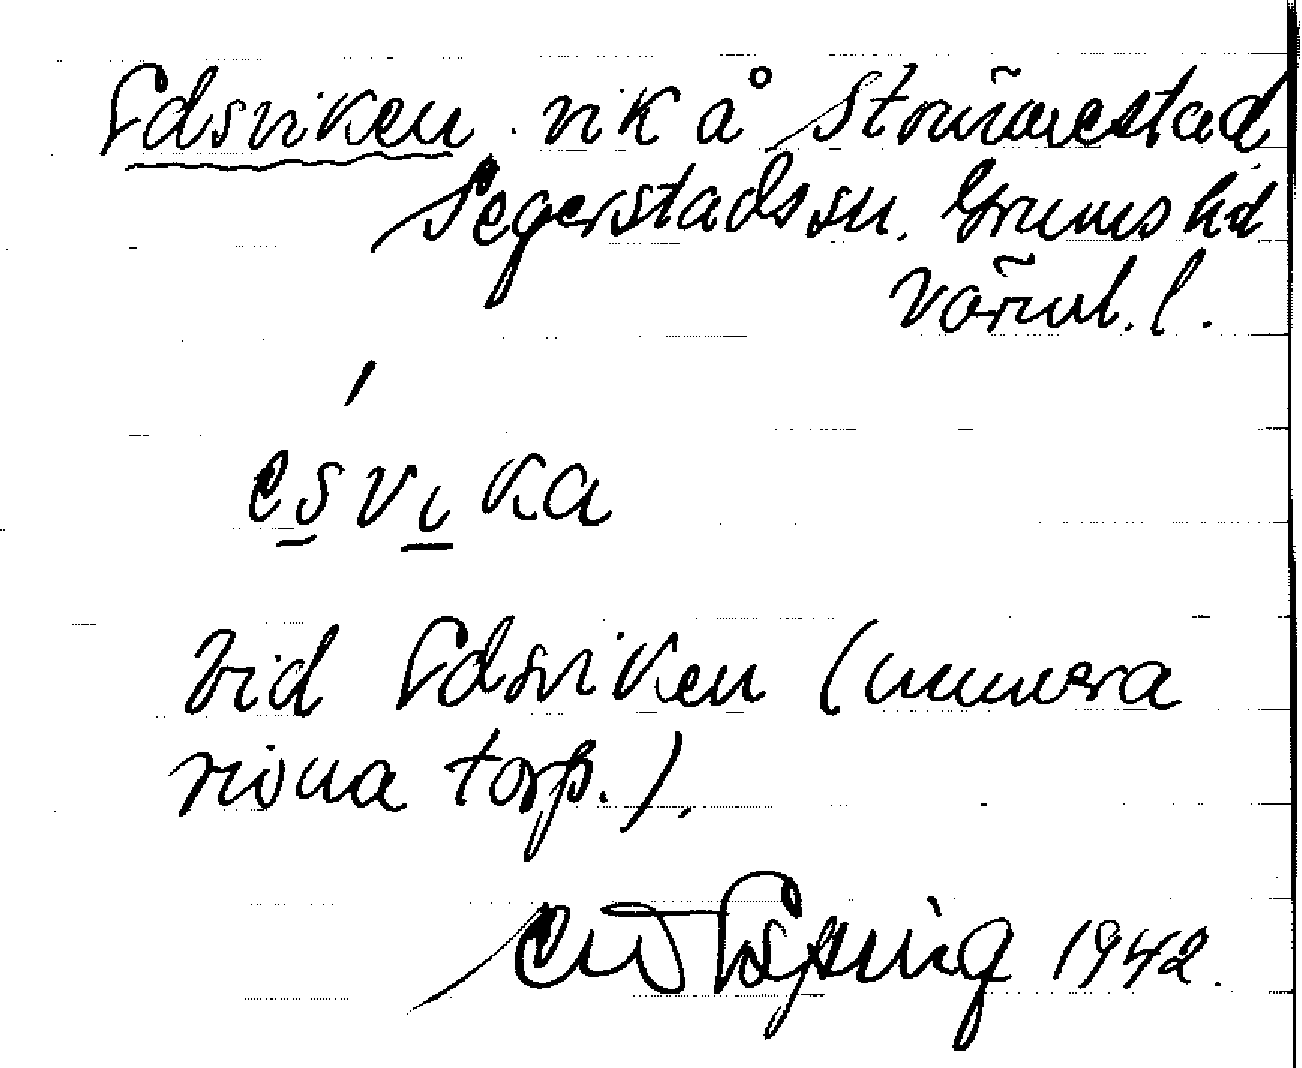 Edsviken. vik å Strannestad,
Segerstads sn. Grums hd
Värml. l.
esvika
Vid Edsviken (numera
rivna torp.).
1942.